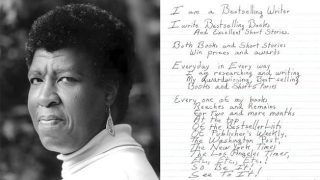 I am a Bestselling Writer
I write Bestselling Books
And Excellent Short Stories
Both Books and Short Stories
win prizes and awards
Everyday in Every way
I am researching and writing
My award winning, Best-selling
Books and Short stories
Every one of my books
Reaches and Remains
For Two and more months
At the top
Of the Bestseller Lists
Of Publisher's Weekly,
The Washington Post,
The New York Times
The Los Angeles Times,
Etc., Etc.,
So Be It!
See To It!